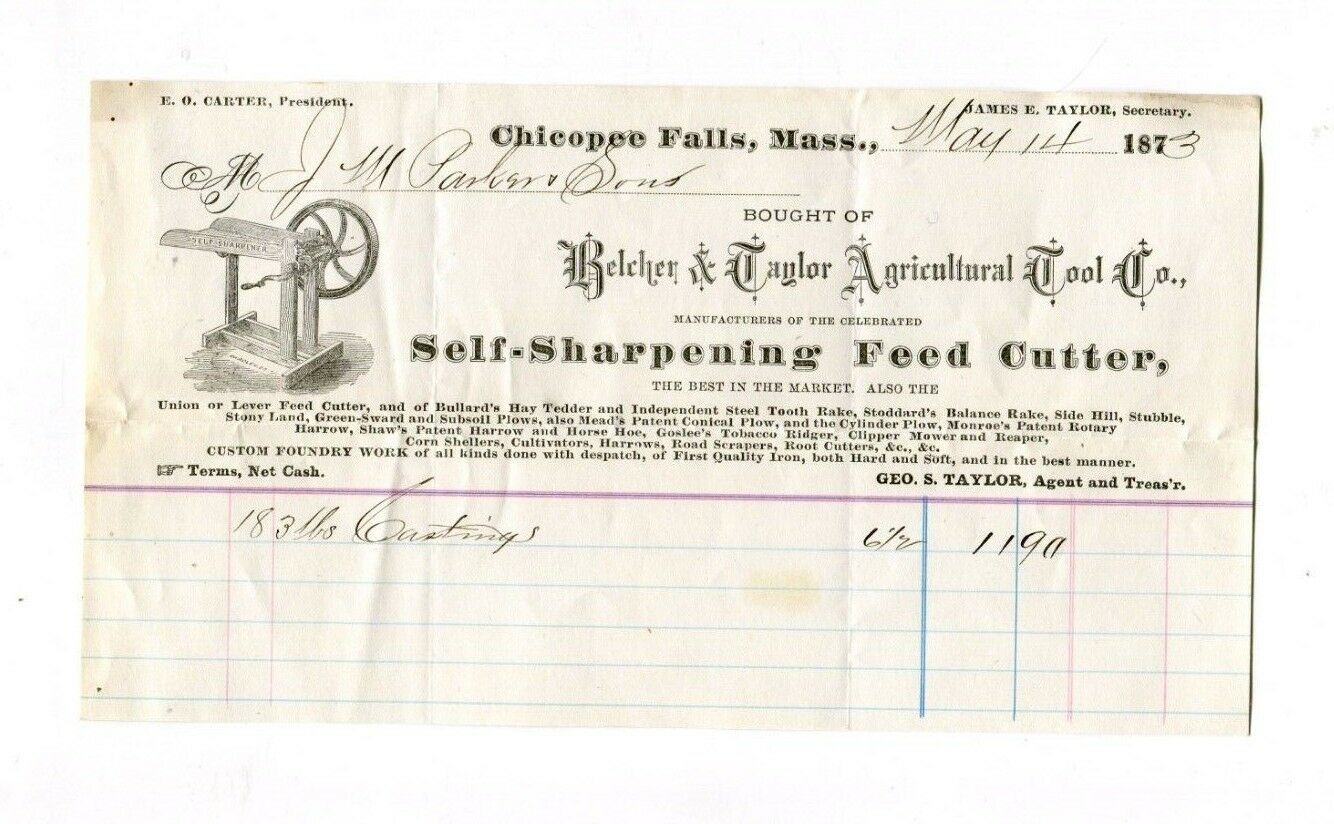 E. O. CARTER, President.
JAMES E. TAYLOR, Secretary.
Chicopee Falls, Mass., May 14 1873
M J M Parker & Sons
BOUGHT OF
Belcher & Taylor Agricultural Tool Co.,
MANUFACTURERS OF THE CELEBRATED
Self-Sharpening Feed Cutter,
THE BEST IN THE MARKET. ALSO THE
Union or Lever Feed Cutter, and of Bullard's Hay Tedder and Independent Steel Tooth Rake, Stoddard's Balance Rake, Side Hill, Stubble,
Stony Land, Green-Sward and Subsoil Plows, also Mead's Patent Conical Plow, and the Cylinder Plow, Monroe's Patent Rotary
Harrow, Shaw's Patent Harrow and Horse Hoe, Goslee's Tobacco Ridger, Clipper Mower and Reaper,
Corn Shellers, Cultivators, Harrows, Road Scrapers, Root Cutters, &c., &c.
CUSTOM FOUNDRY WORK of all kinds done with despatch, of First Quality Iron, both Hard and Soft, and in the best manner.
☞ Terms, Net Cash.
GEO. S. TAYLOR, Agent and Treas'r.
SELF-SHARPENER
183 lbs Castings 6 1/2 11 90